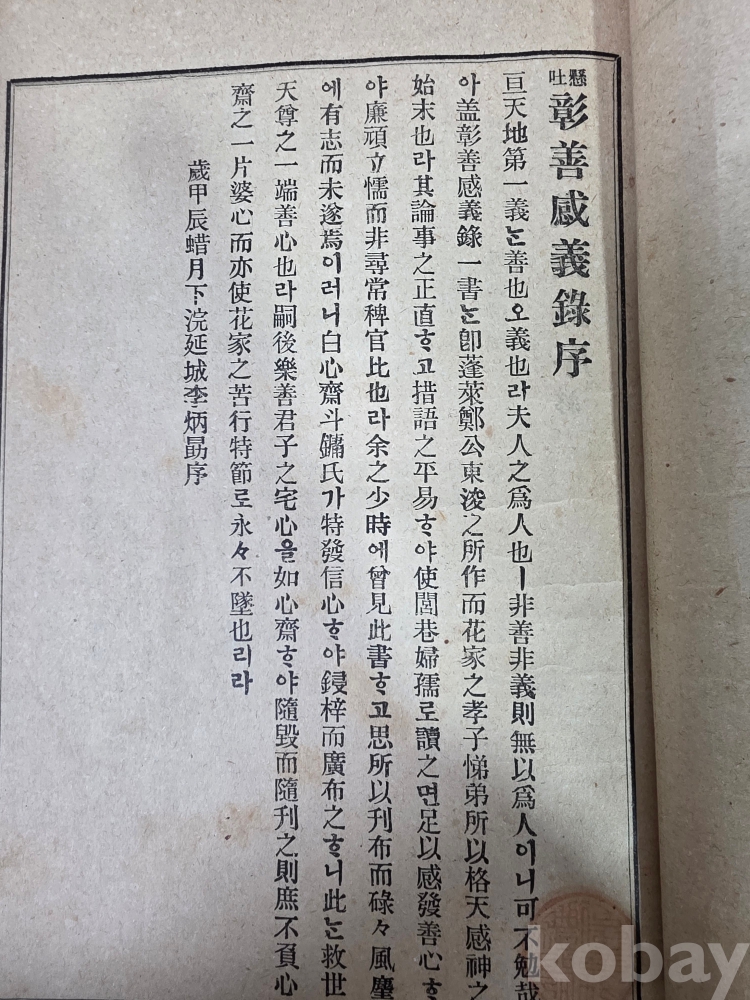 懸吐
彰善感義錄序
亘天地第一義ᄂᆞᆫ善也오義也라夫人之爲人也ㅣ非善非義則無以爲人이니可不勉哉
아盖彰善感義錄一書ᄂᆞᆫ卽蓬萊鄭公東浚之所作而花家之孝子悌弟所以格天感神之
始末也라其論事之正直ᄒᆞ고措語之平易ᄒᆞ야使閭巷婦孺로讀之면足以感發善心ᄒᆞ
야廉頑立懦而非尋常稗官比也라余之少時에曾見此書ᄒᆞ고思所以刊布而碌々風塵
에有志而未遂焉이러니白心齋斗鏞氏가特發信心ᄒᆞ야鋟梓而廣布之ᄒᆞ니此ᄂᆞᆫ救世
天尊之一端善心也라嗣後樂善君子之宅心을如心齋ᄒᆞ야隨毀而隨刊之則庶不負心
齋之一片婆心而亦使花家之苦行特節로永々不墜也리라
歲甲辰蜡月下浣延城李炳勗序
kobay